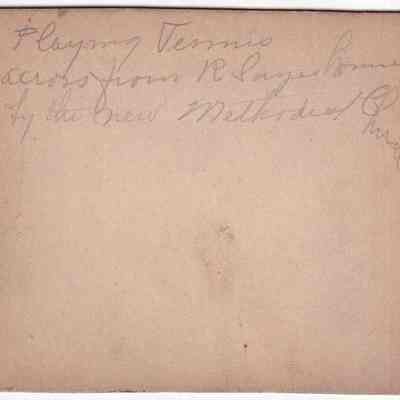 Playing Tennis
across from R Sayes home
by the new Methodist Church